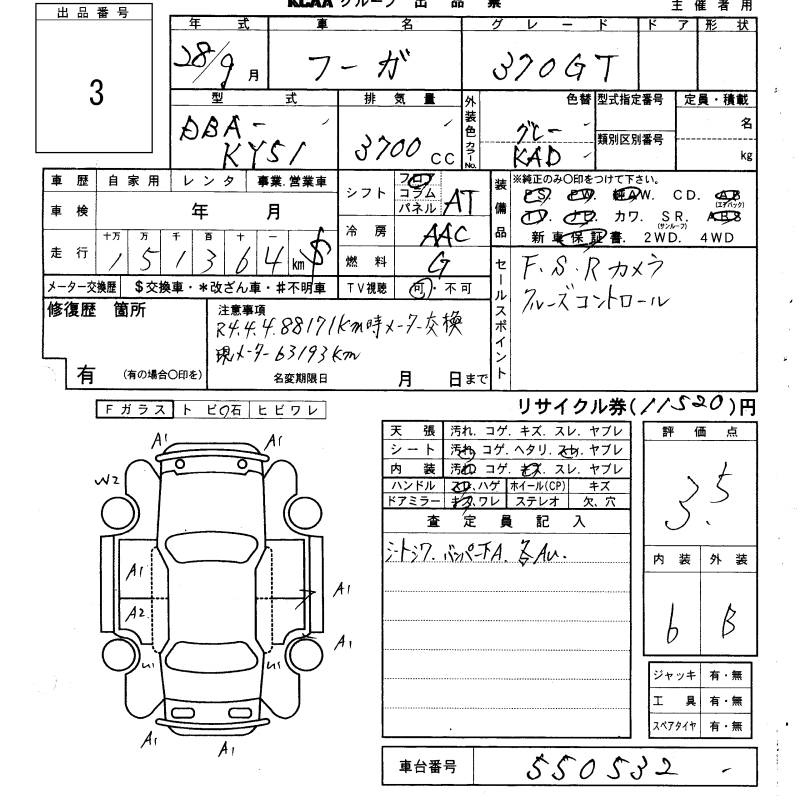 KCAA グループ 出 品 票
主 催 者 用
出 品 番 号
3
年 式
28/9 月
車 名
フーガ
グ レ ー ド
370GT
ド ア 形 状
型 式
DBA-
KY51
排 気 量
3700 CC
外装色 カラーNo.
色替
グレー
KAD
型式指定番号
類別区別番号
定員・積載
名
kg
車 歴 自 家 用 レ ン タ 事業.営業車
車 検 年 月
走 行
十万 万 千 百 十 一
1 5 1 3 6 4 km $
メーター交換歴 $交換車・*改ざん車・#不明車
シフト フロア コラム パネル AT
冷 房 AAC
燃 料 G
TV視聴 可・不可
装備品
※純正のみ〇印をつけて下さい。
PS. PW. 純AW. CD. AB (エアバック)
TV. ナビ. カワ. SR. (サンルーフ) ABS
新 車 保 証 書. 2WD. 4WD
セールスポイント
F.S.Rカメラ
クルーズコントロール
修復歴 箇所
有 (有の場合〇印を)
注意事項
R4.4.4.88171km時メーター交換
現メーター63193km
名変期限日 月 日まで
リサイクル券(11520)円
Fガラス ト ビ 石 ヒ ビ ワ レ
A1 A1
W2
A1
A2
A1
A1
U1 U1
A1 A1
天 張 汚れ. コゲ. キズ. スレ. ヤブレ
シート 汚れ. コゲ. ヘタリ. スレ. ヤブレ
内 装 汚れ. コゲ. キズ. スレ. ヤブレ
ハンドル スレ.ハゲ ホイール(CP) キズ
ドアミラー キズ.ワレ ステレオ 欠.穴
査 定 員 記 入
シートシワ. バンパー下A. 各AU.
評 価 点
3.5
内 装 外 装
6 B
ジャッキ 有・無
工 具 有・無
スペアタイヤ 有・無
車台番号 550532